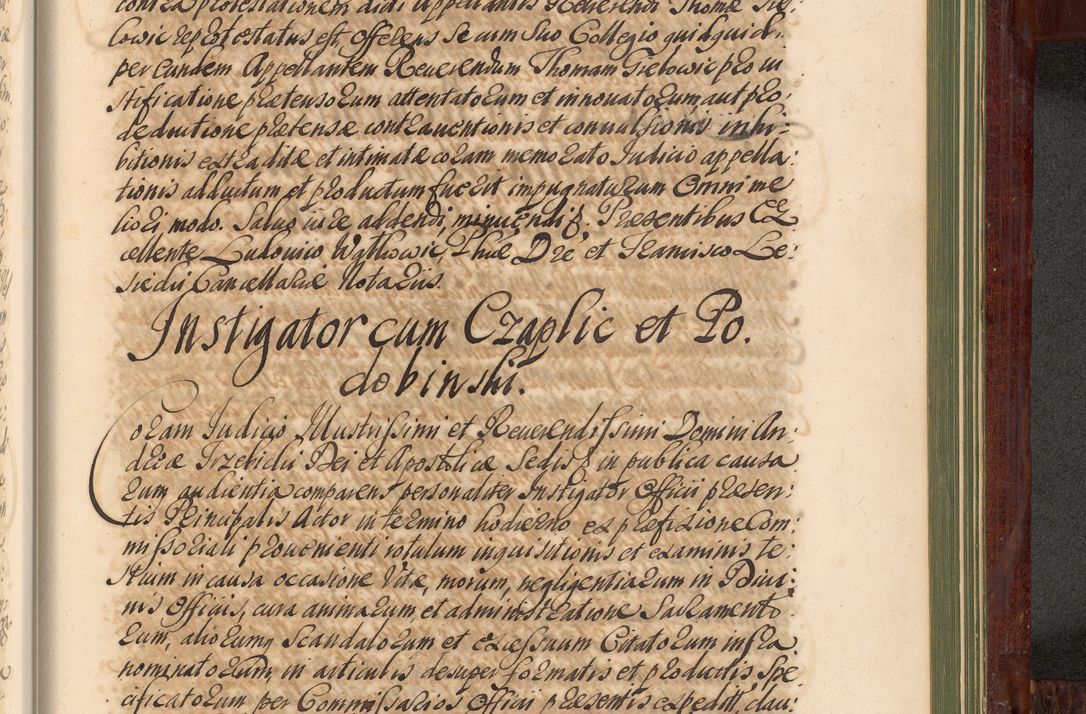 contra protestationem didi Appellantis Reverendi Thomæ Tre-
lowic repotestatus est offerens se cum suo Collegio quidquid
per eundem Appellantem Reuerendum Thomam Trelowic pro iu
stificatione prætensorum attentatorum et innouatorum aut pro
deductione prætensæ contrauentionis et conuulsionis inhi-
bitionis extraditæ et intimatæ coram memorato Judicio appella
tionis adductum et productum fuerit impugnaturum Omni me
liori modo. Saluo iure addendi, minuendi &. Præsentibus Ex
cellente Ludouico Wytkowic, Phiæ Dre et Francisco Le-
Cancellariæ Notariis.
Instigator cum Czaplic et Po.
dobinski.
Coram Judicio Illustrissimi et Reuerendissimi Domini An-
dreæ Trzebicki Dei et Apostolicæ Sedis & in publica causa
rum audientia comparens personaliter Instigator Officii præsen-
tis Principalis Actor in termino hodierno ex præfixione Com
missoriali prouenienti rotulum inquisitionis et examinis te-
stium in causa occasione Vitæ, morum, negligentiarum in Diui-
nis Officiis, cura animarum, et administratione Sacramento
rum, aliorumq Scandalorum et excessuum Citatorum infra
nominatorum, in articulis desuper formatis et productis, spe
cificatorum per Commissarios Officii præsentis expedit, clau-